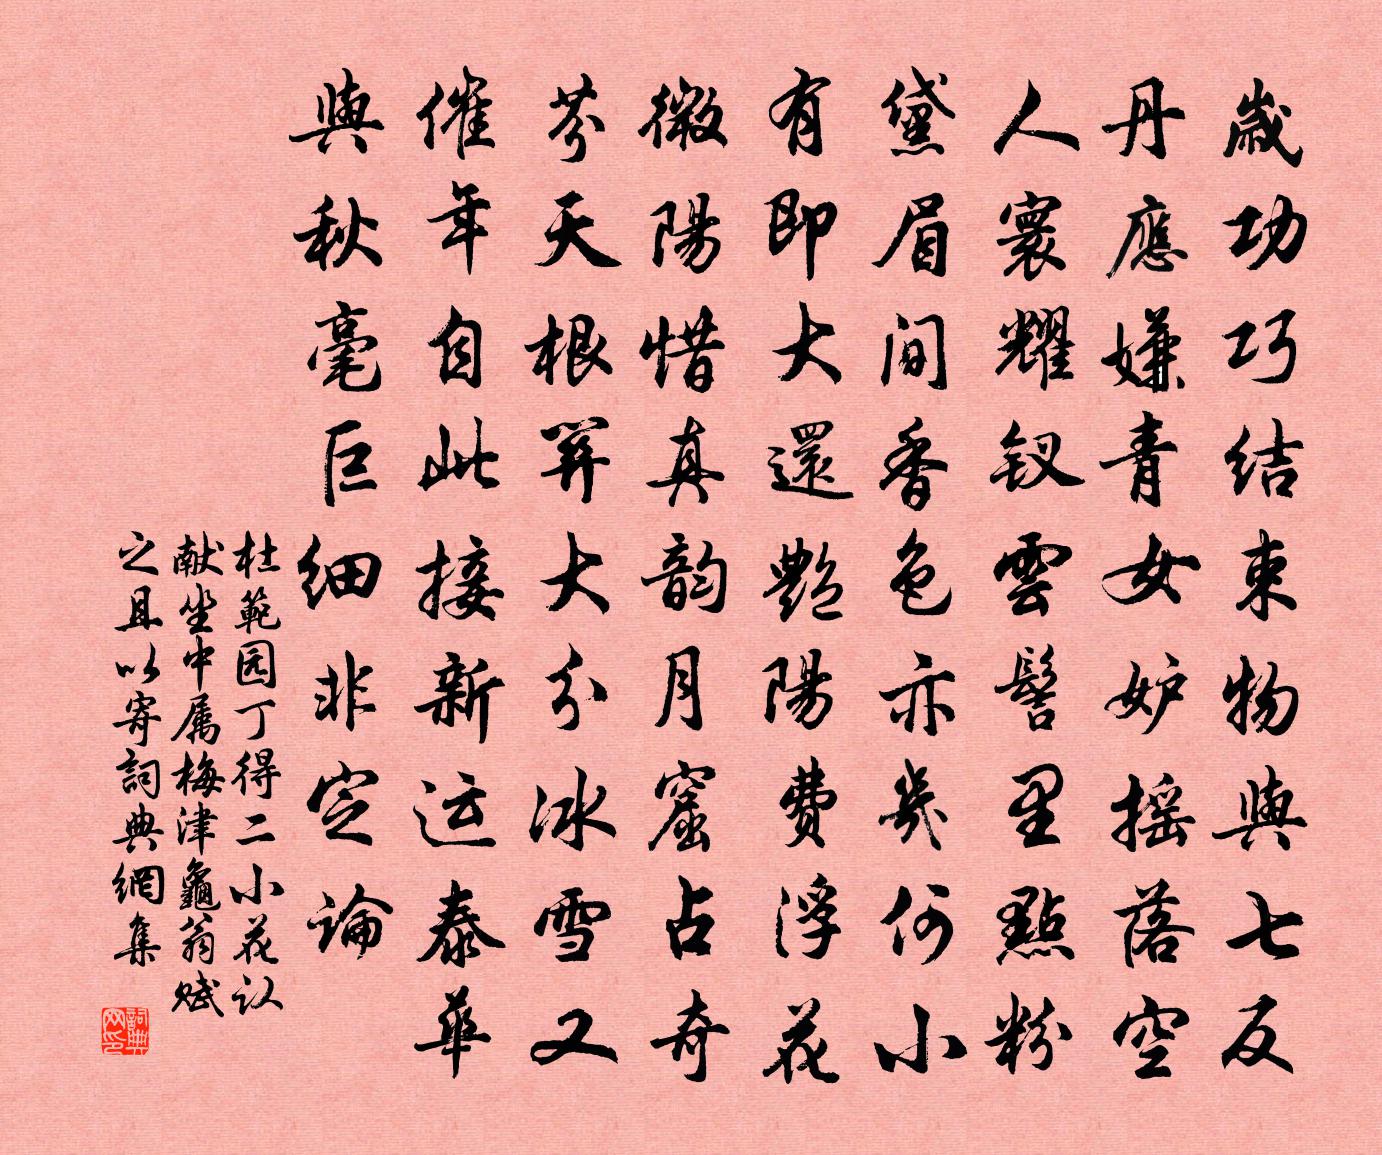 歲功巧結束物與七反
丹應嫌青女妒摇落空
人寰耀釵雲髻里點粉
黛眉間香色亦幾何小
有即大還艷陽費浮花
微陽惜真韵月窟占奇
芬天根笄大分冰雪又
催年自此接新运泰華
與秋毫巨細非定論
杜範园丁得二小花认
献坐中属梅津龜翁赋
之且以寄詞典網集
詞典网印